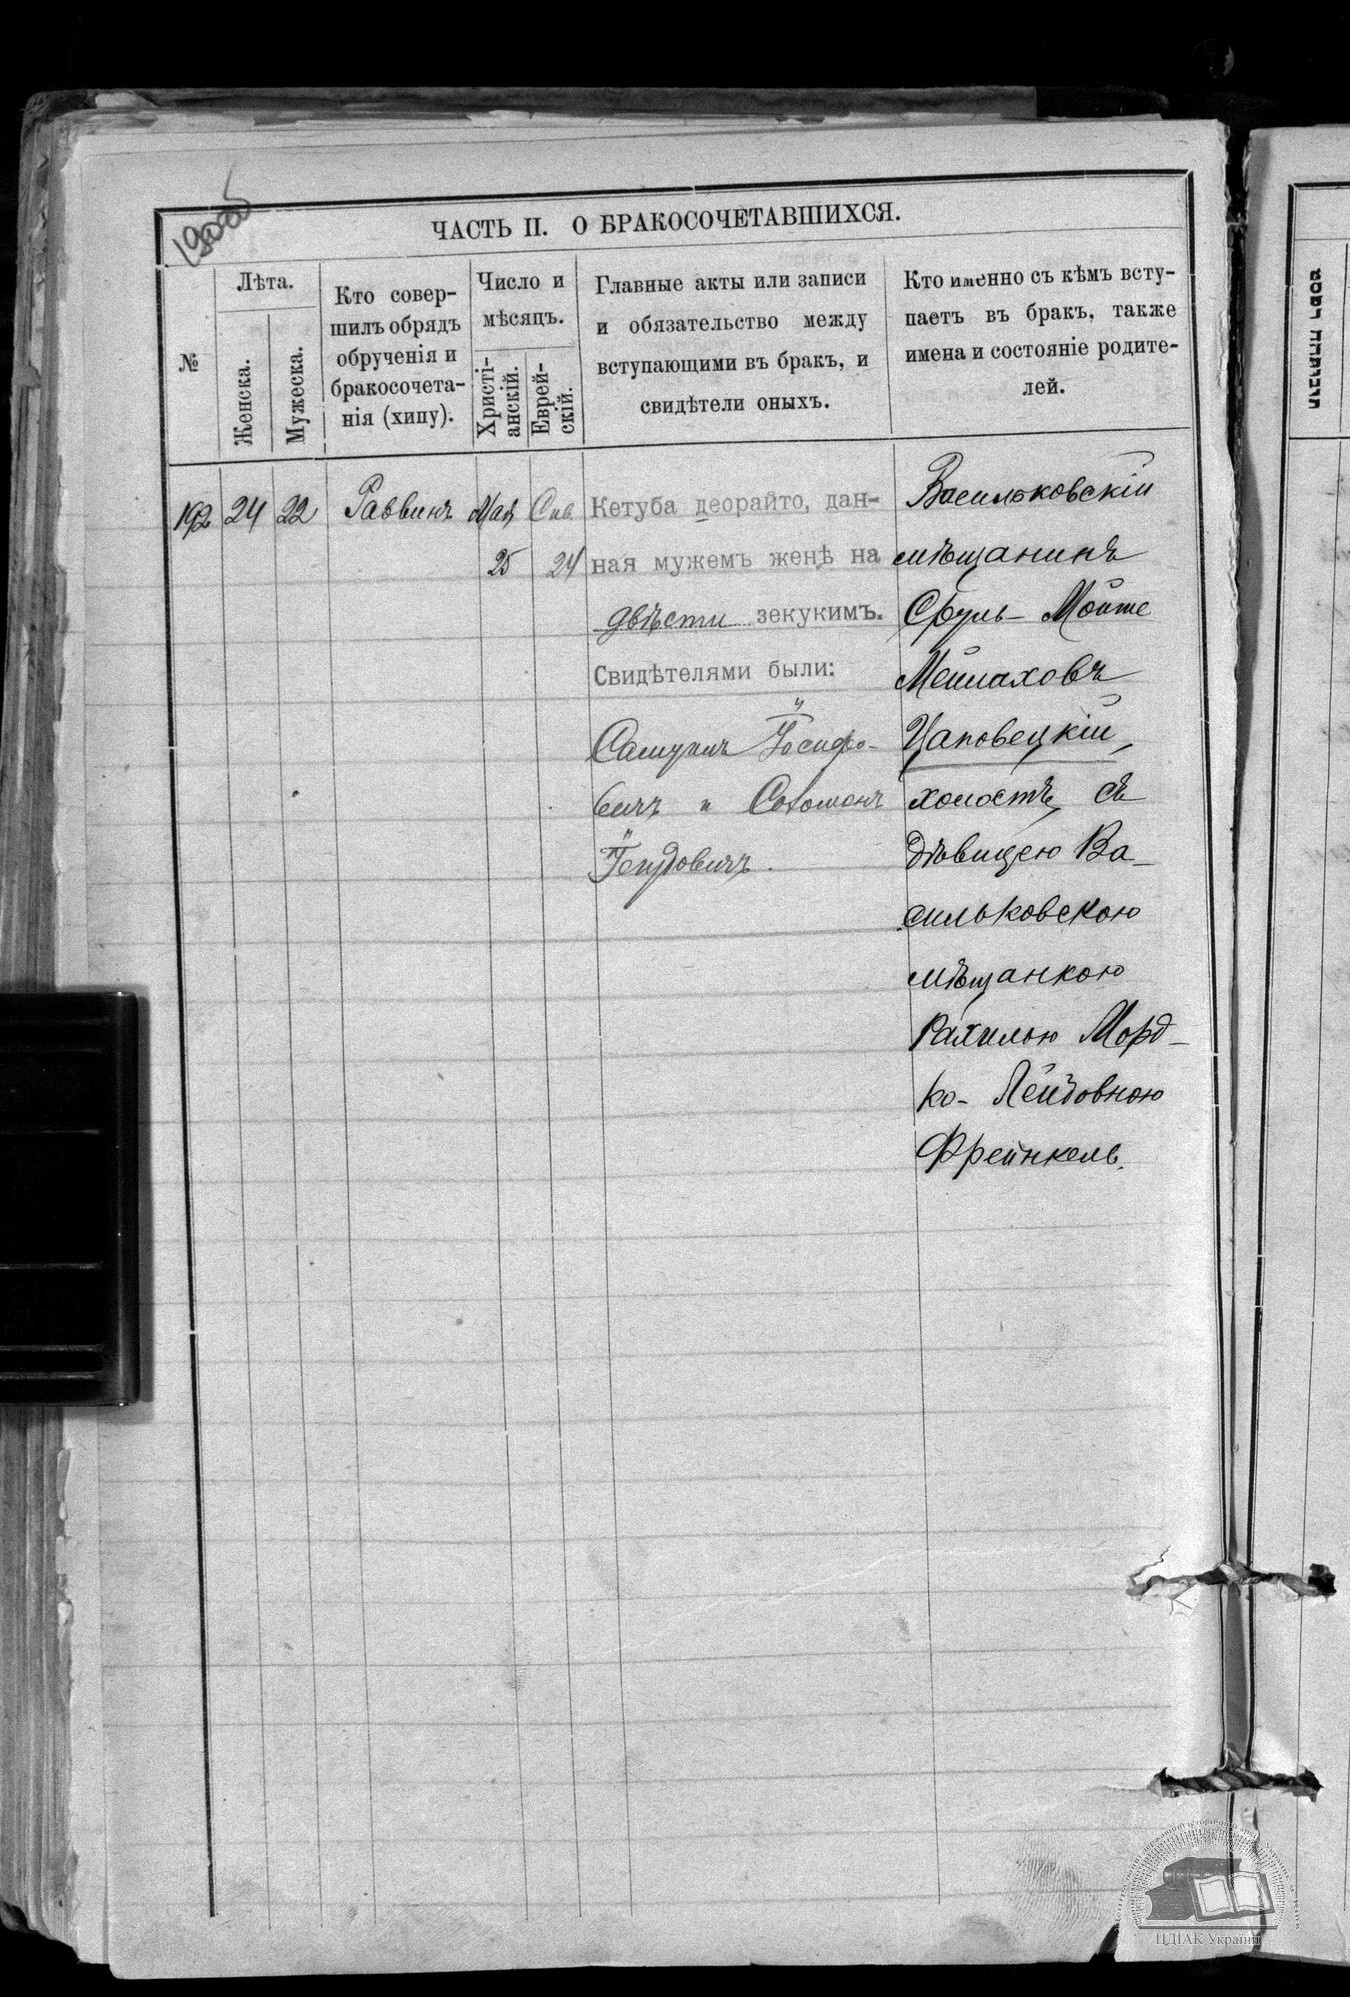 ЧАСТЬ II. О БРАКОСОЧЕТАВШИХСЯ.
№
Лѣта.
Женска.
Мужеска.
Кто совер-
шилъ обрядъ
обрученія и
бракосочета-
нія (хипу).
Число и
мѣсяцъ.
Христі-
анскій.
Еврей-
скій.
Главные акты или записи
и обязательство между
вступающими въ бракъ, и
свидѣтели оныхъ.
Кто именно съ кѣмъ всту-
паетъ въ бракъ, также
имена и состояніе родите-
лей.
192
24
22
Раввинъ
Мая
25
Сив.
24
Кетуба деорайто, дан-
ная мужемъ женѣ на
двѣсти зекукимъ.
Свидѣтелями были:
Самуилъ Іосифо-
вичъ и Соломонъ
Васильковскій
мѣщанинъ
Сруль-Мойше
Мейлаховъ
Цаповецкій,
холостъ, съ
дѣвицею Ва-
сильковскою
мѣщанкою
Рахилью Морд-
ко-Лейбовною
Френкель.
ЦДІАК України